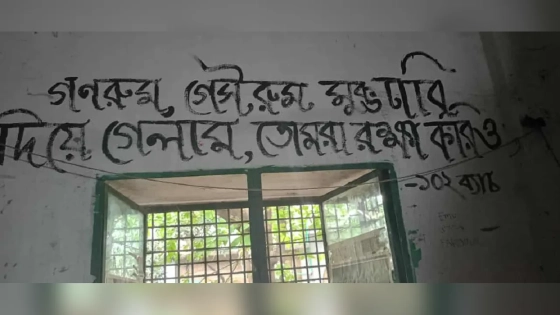 গনরুম, গেস্টরুম মুক্ত ঢাবি
দিয়ে গেলাম, তোমরা রক্ষা করিও
-১০২ ব্যাচ